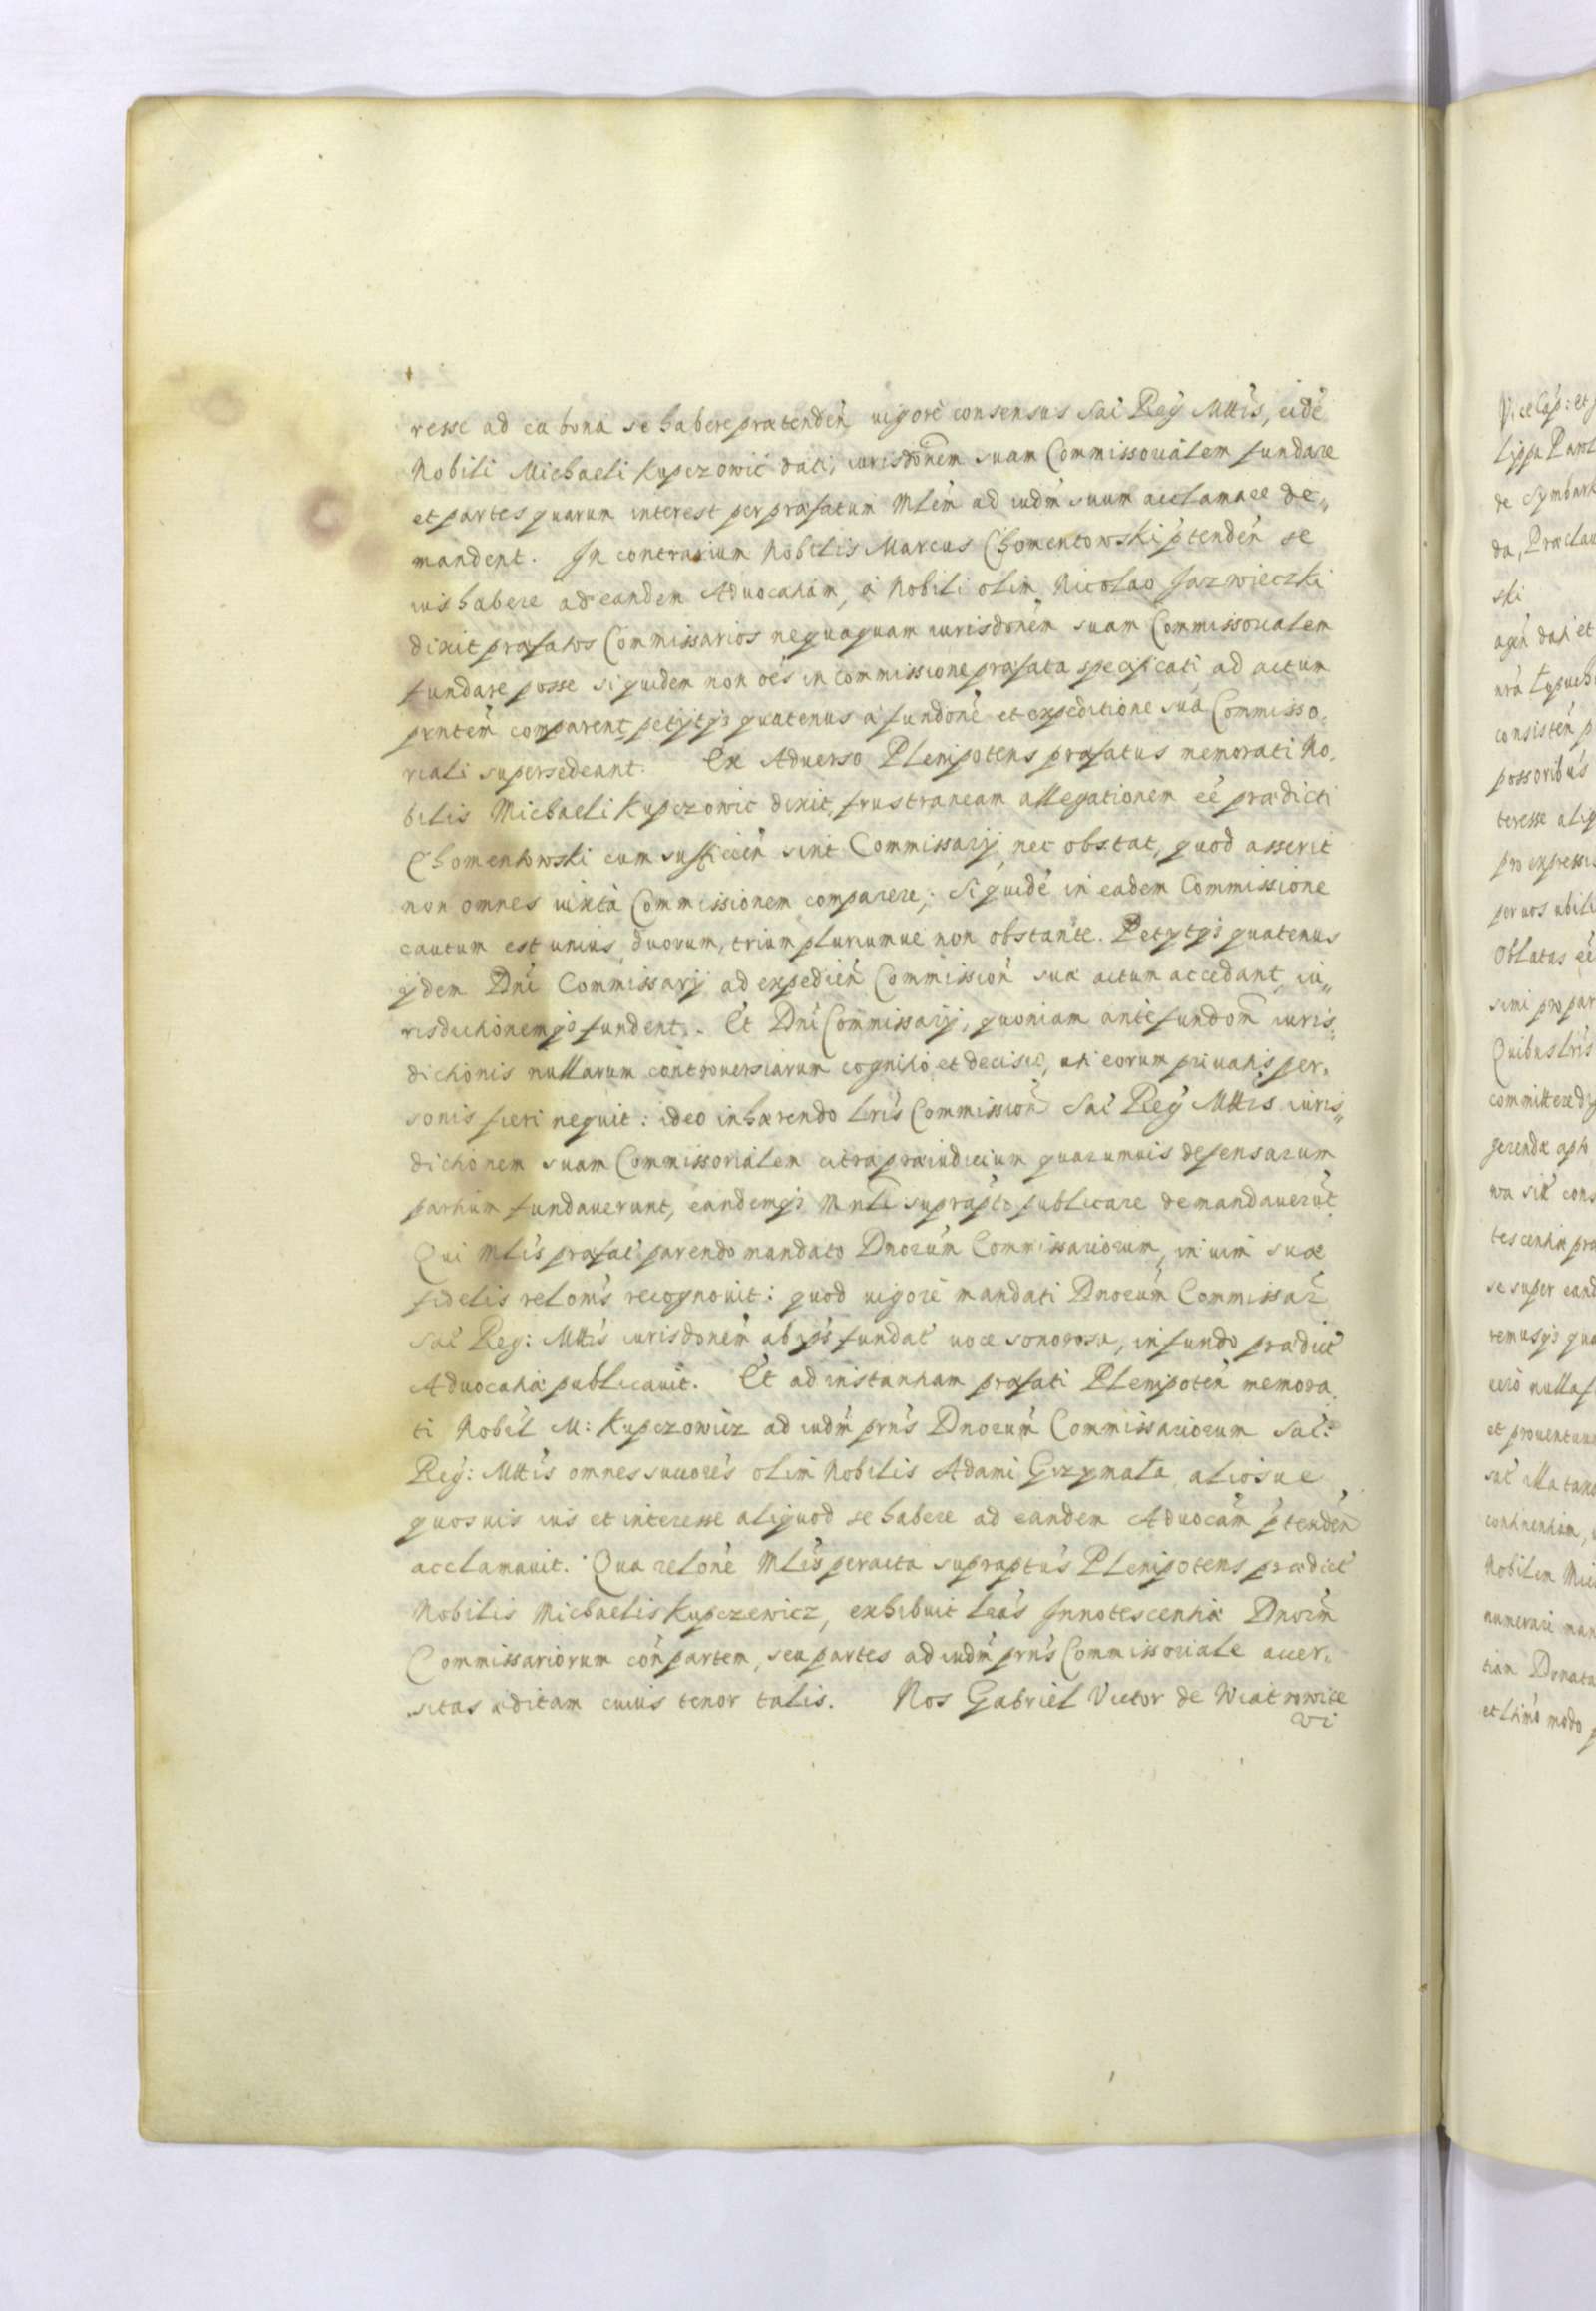 resse ad ea bona se habere prætendeń uigore consensus Sac̄ Reg̃ Mttis, eidē
Nobili Michaeli Kupczowic dati, iurisdōnem suam Commissorialem fundare
et partes quarum interest per præfatum Mlēm ad iudm̄ suum acclamare de„
mandent. In contrarium Nobilis Marcus Chomentowski p̄tendeń se
ius habere ad eandem Aduocatiam, à Nobili olim Nicolao Jazwieczki
dixit præfatos Commissarios nequaquam iurisdonēm suam Commissorialem
fundare posse siquidem non oēs in commissione præfata specificati ad actum
prntem̄ comparent, petytqȝ quatenus à fundonē et expeditione sua Commisso„
riali supersedeant. Ex Aduerso Plenipotens præfatus memorati No„
bilis Michaeli Kupczowic dixit, frustraneam allegationem eē prædicti
Chomentowski cum sufficień sint Commissarij nec obstat, quod asserit
non omnes iuxtà Commissionem comparere; Siquidē in eadem Commissione
cautum est unius, duorum, trium pluriumue non obstante. Petytqȝ quatenus
ijdem Dnī Commissarij ad expedień Commissioń suæ actum accedant, iu„
risdictionemqȝ fundent. Et Dnī Commissarij, quoniam ante fundom̄ iuris„
dictionis nullarum controuersiarum cognitio et decisio, uti eorum priuatis per„
sonis fieri nequit: ideo inhærendo lrīs Commissioń Sac̄ Reg̃ Mttis iuris„
dictionem suam Commissorialem citra præiudicium quarumuis defensarum
partium fundauerunt, eandemqȝ Mnlī suprap̄to publicare demandauerūt
Qui Mlīs præfat̄ parendo mandato Dnorūm Commissariorum, in uim suæ
fidelis relomīs recognouit: quod uigore mandati Dnorūm Commissar̄
Sac̄ Reg: Mttis iurisdonēm ab ip̄s fundat̄ uoce sonorosa, in fundo prædict̄
Aduocatiæ publicauit. Et ad instantiam præfati Plenipoteń memora„
ti Nobil̄ M: Kupczowicz ad iudm̄ prn̄s Dnorūm Commissariorum Sac̄:
Reg̃: Mttis omnes succorēs olim Nobilis Adami Grzymała, aliosue
quosuis ius et interesse aliquod se habere ad eandem Aduocām p̄tendeń
acclamauit. Qua relonē Mlīs peracta supraptūs Plenipotens prædict̄
Nobilis Michaelis Kupczewicz, exhibuit lr̄as Innotescentiæ Dnorm̄
Commissariorum coń partem, seu partes ad iudm̄ prn̄s Commissoriale auer„
sitas æditam cuius tenor talis. Nos Gabriel Victor de Wiatrowice
Vi
Vicecap: et
de Cymbark
da, Præclar
ski
ageń dati et
consisteń p
possoribūs
teresse aliq
pro expressis
per nos nbili
Oblatas eē
simi pro par
Quibus lrīs
committere dig
gerendæ apto
tescentiæ præ
se super eand
remusqȝ quo
et prouentuum
Nobilem Mic
numerari man
tiam Donata